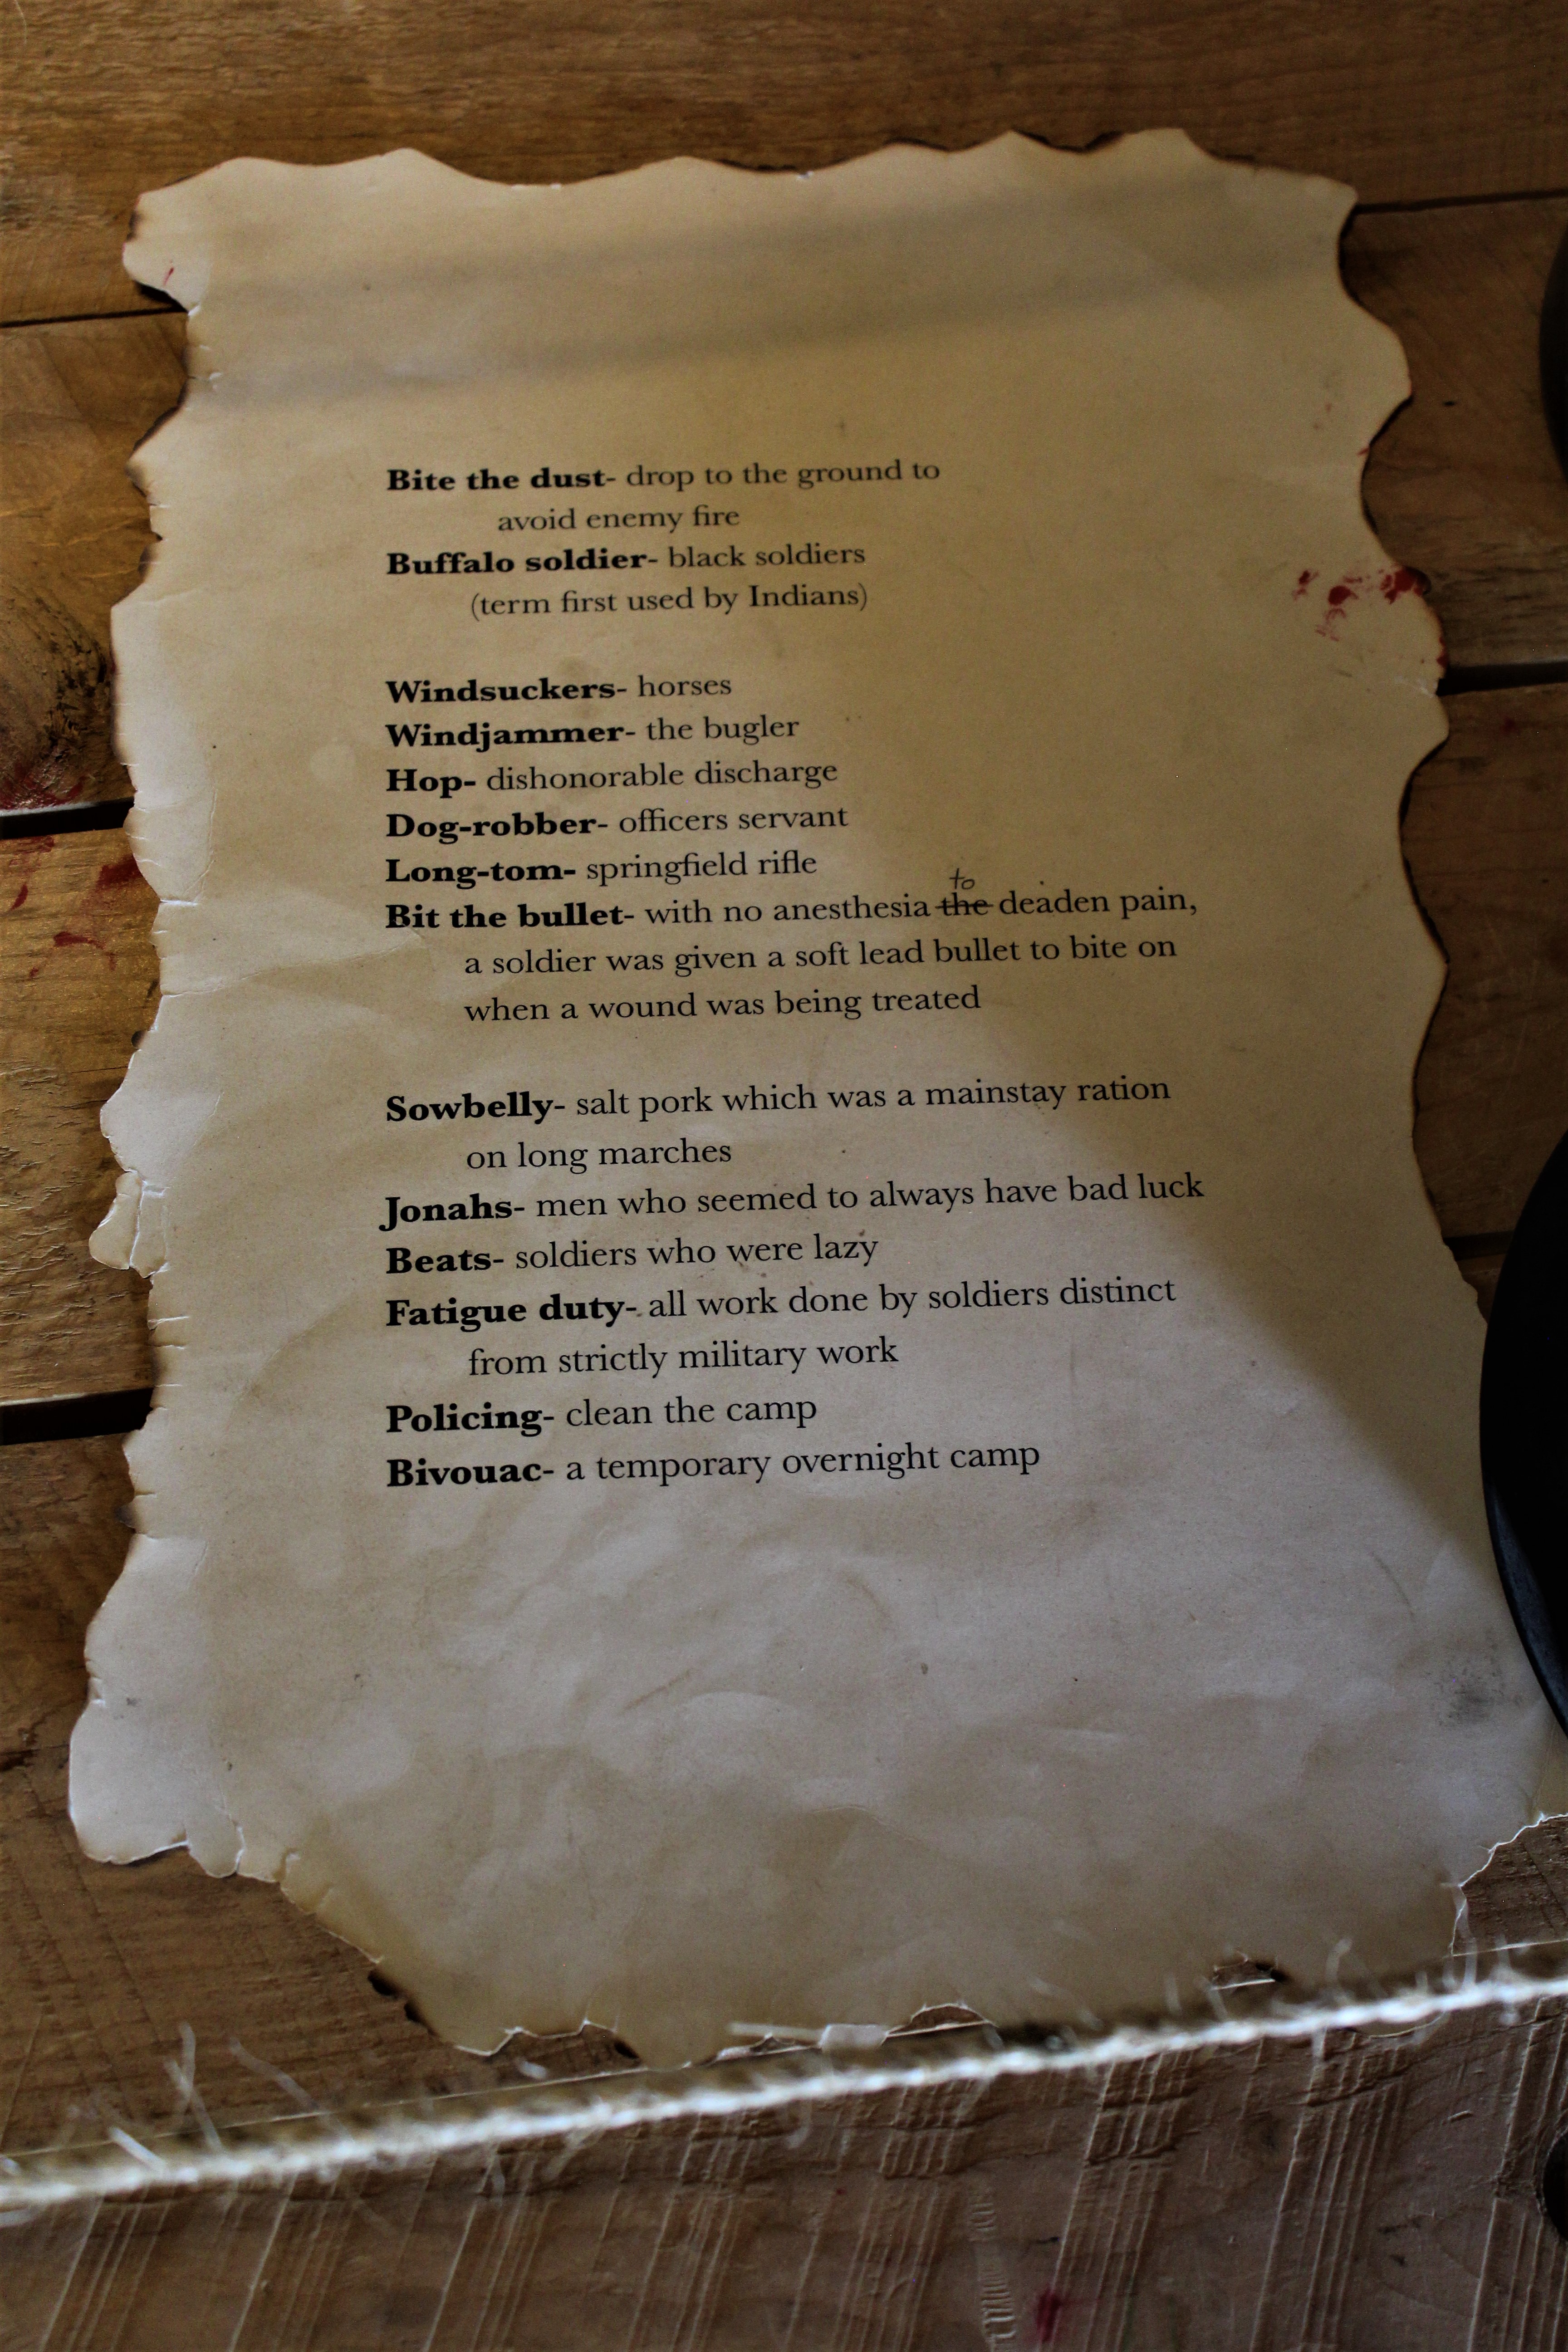 Bite the dust- drop to the ground to
avoid enemy fire
Buffalo soldier- black soldiers
(term first used by Indians)
Windsuckers- horses
Windjammer- the bugler
Hop- dishonorable discharge
Dog-robber- officers servant
Long-tom- springfield rifle
to
Bit the bullet- with no anesthesia the deaden pain,
a soldier was given a soft lead bullet to bite on
when a wound was being treated
Sowbelly- salt pork which was a mainstay ration
on long marches
Jonahs- men who seemed to always have bad luck
Beats- soldiers who were lazy
Fatigue duty- all work done by soldiers distinct
from strictly military work
Policing- clean the camp
Bivouac- a temporary overnight camp